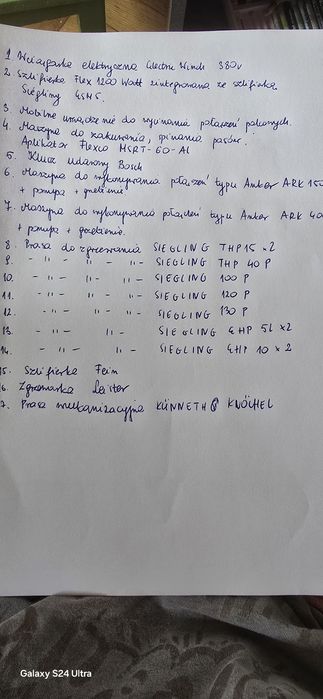 1. Wciągarka elektryczna Electric Winch 380v
2. Szlifierka Flex 1200 Watt zintegrowana ze szlifierką
Siegling
3. Mobilne urządzenie do wycinania połączeń palcowych.
4. Maszyna do zakuwania, spinania pasów.
Aplikator Flexco MSRT-60-A1
5. Klucz udarowy Bosch
6. Maszyna do wykonywania połączeń typu Anker ARK 150
+ pompa + grzebienie
7. Maszyna do wykonywania połączeń typu Anker ARK 40
+ pompa + grzebienie.
8. Prasa do zgrzewania SIEGLING THP 15 x2
9. - " - " - "- SIEGLING THP 40 P
10. - " - " - "- SIEGLING 100 P
11. - " - " - "- SIEGLING 120 P
12. - " - " - "- SIEGLING 130 P
13. - " - " - SIEGLING GHP 5L x2
14. - " - " - SIEGLING GHP 10 x 2
15. Szlifierka Fein
6. Zgrzewarka Leister
7. Prasa wulkanizacyjna KÜNNETH & KNÖCHEL
Galaxy S24 Ultra